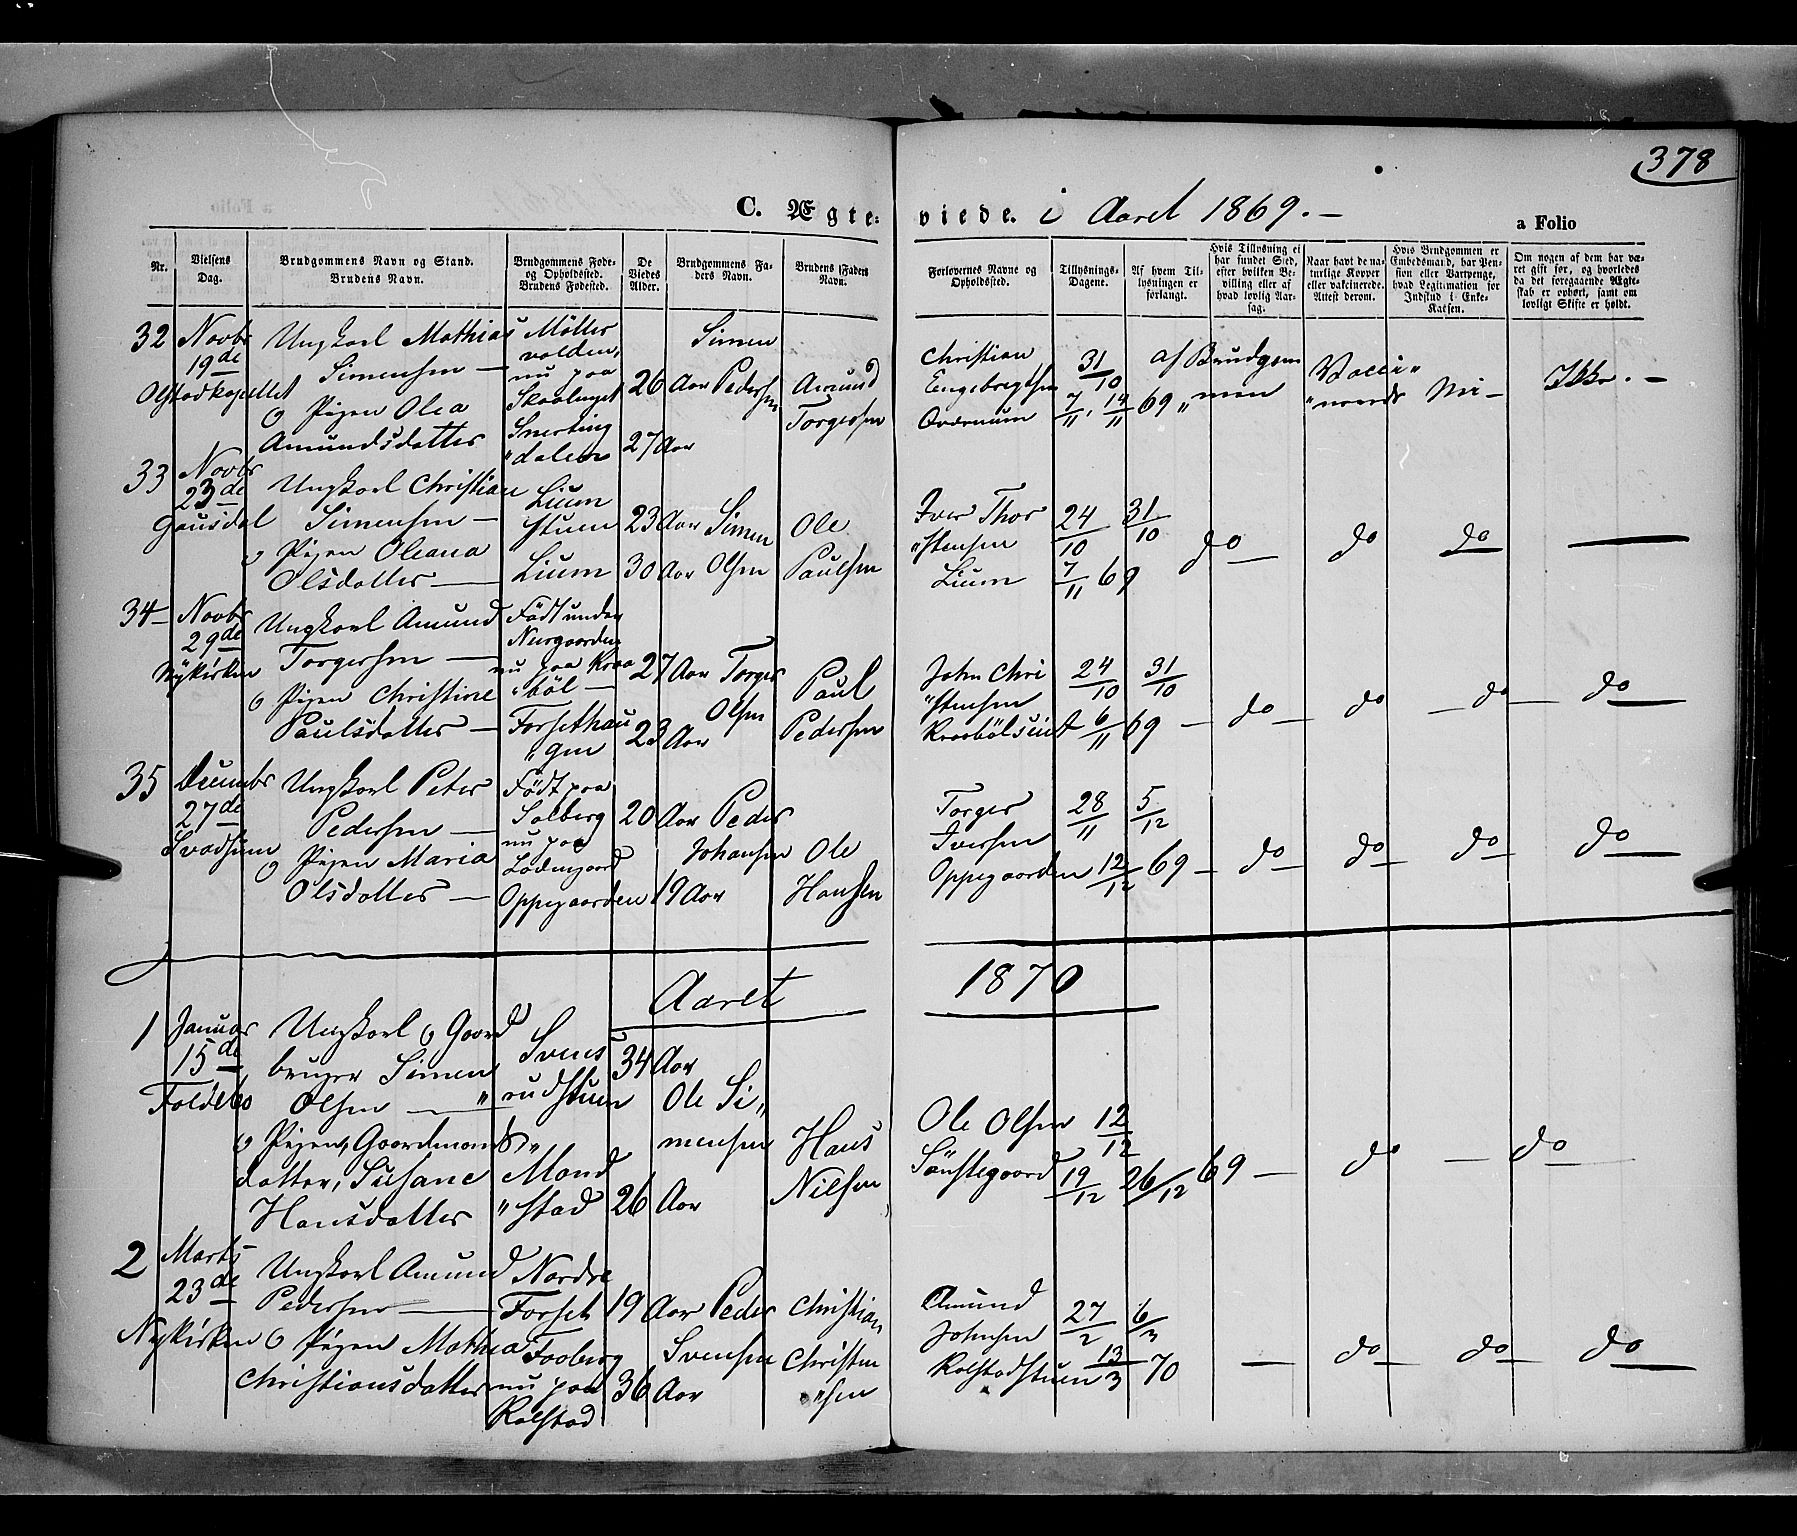 378
C. Ægte- viede. i Aaret 1869. —
a Folio
Nr.
Vielsens Dag.
Brudgommens Navn og Stand. Brudens Navn.
Brudgommens Føde- og Opholdssted. Brudens Fødested.
De Viedes Alder.
Brudgommens Faders Navn.
Brudens Faders Navn.
Forlovernes Navne og Opholdssted.
Tillysnings-Dagene.
Af hvem Tillysningen er forlangt.
Hvis Tillysning ei har fundet Sted, efter hvilken Bevilling eller af hvad lovlig Aarsag.
Naar havt de naturlige Kopper eller vakcinerede. Attest derom.
Hvis Brudgommen er Embedsmand, har Pension eller Vartpenge, hvad Legitimation for Indskud i Enke-Kassen.
Om nogen af dem har været gift før, og hvorledes da det foregaaende Ægteskab er ophørt, samt om lovligt Skifte er holdt.
32
Novbr
19de
Olstadkapellet
Ungkarl Mathias
Simensen —
og Pigen Olea
Amundsdatter
Møller
volden,
nu paa
Snerting
"dalen
26 Aar
27 Aar
Simen
Pedersen
Amund
Torgersen
Christian
Engebregtsen
31/10
7/11, 14/11 69
af Brudgom
"men
Vacci"
"nerede
Ikke. —
33
Novbr
23de
Gausdal
Ungkarl Christian
Simensen —
og Pigen Oleana
Olsdatter —
Lium
stuen
Lium
23 Aar
30 Aar
Simen
Olsen
Ole
Paulsen
Iver Thor
"stensen
Lium
24/10 31/10
7/11 69
do —
do
do
—
34 —
Novbr
29de
Nykirken
Ungkarl Amund
Torgersen —
og Pigen Christine
Paulsdatter —
Født under
Nergaarden
nu paa Kraa
"bøl —
Forsethau
"gen
27 Aar
23 Aar
Torger
Olsen
Paul
Pedersen
John Chri
"stensen
24/10 31/10
6/11 69 —
do —
do
— do —
do
35
Decembr
27de
Svadsum
Ungkarl Peter
Pedersen —
og Pigen Maria
Olsdatter —
Født paa
Solberg
nu paa
Oppegaarden
20 Aar
19 Aar
Peder
Johansen
Ole
Hansen
Torger
Iversen
Oppegaarden
28/11 5/12
12/12 69 —
do —
do
do
do
Aaret 1870
1
Januar
15de
Foldebo
Ungkarl og Gaard
bruger Simen
Olsen — "
og Pigen, Gaardmands
datter, Susane
Hansdatter
Svens
rudstuen
Mand
"stad
34 Aar
26 Aar
Ole Si"
mensen
Hans
Nilsen
Ole Olsen
Sønstegaard
12/12
19/12 26/12 69 —
do —
do
2
Marts
23de
Nykirken
Ungkarl Amund
Pedersen —
og Pigen Mathea
Christiansdatter
Nordre
Forset
Faaberg
nu paa
Rolstad
19 Aar
36 Aar
Peder
Svensen
Christian
Christen
"sen
Amund
Johnsen
Rolstadstuen
27/2 6/3
13/3 70
—
do
do
do